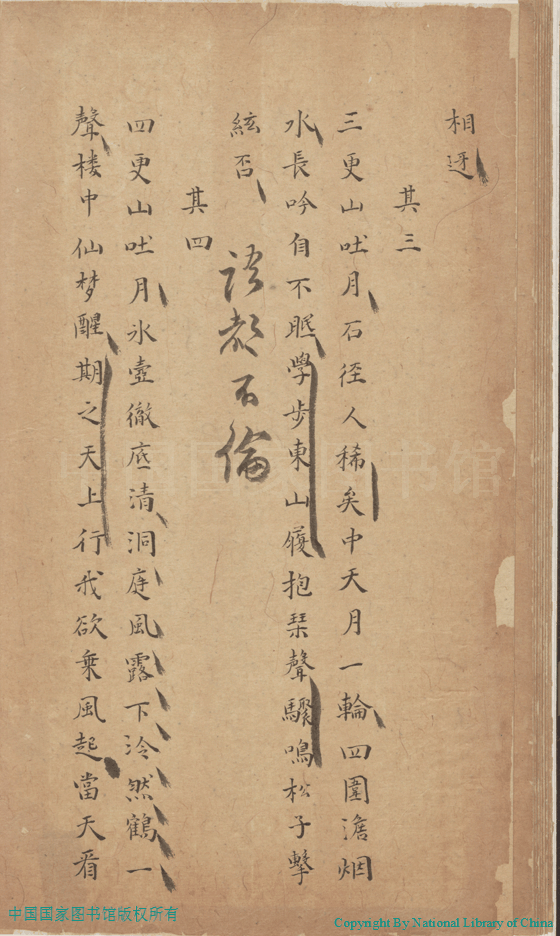 相迓
其三
三更山吐月石徑人稀矣中天月一輪四圍澹烟
水長吟自不眠學步東山屐抱琹聲驟鳴松子擊
絃否
語都不倫
其四
四更山吐月氷壺徹底清洞庭風露下泠然鶴一
聲楼中仙梦醒期之天上行我欲乗風起當天看
中国国家图书馆
中国国家图书馆版权所有
Copyright By National Library of China